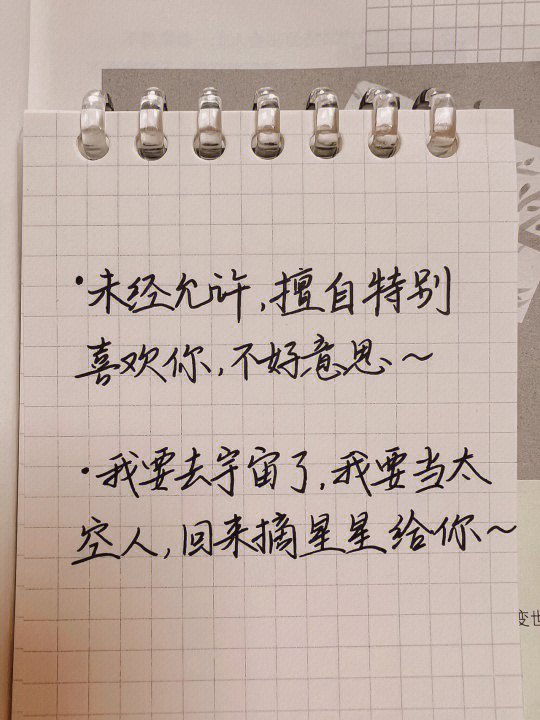 ·未经允许,擅自特别
喜欢你,不好意思~
·我要去宇宙了,我要当太
空人,回来摘星星给你~
变世